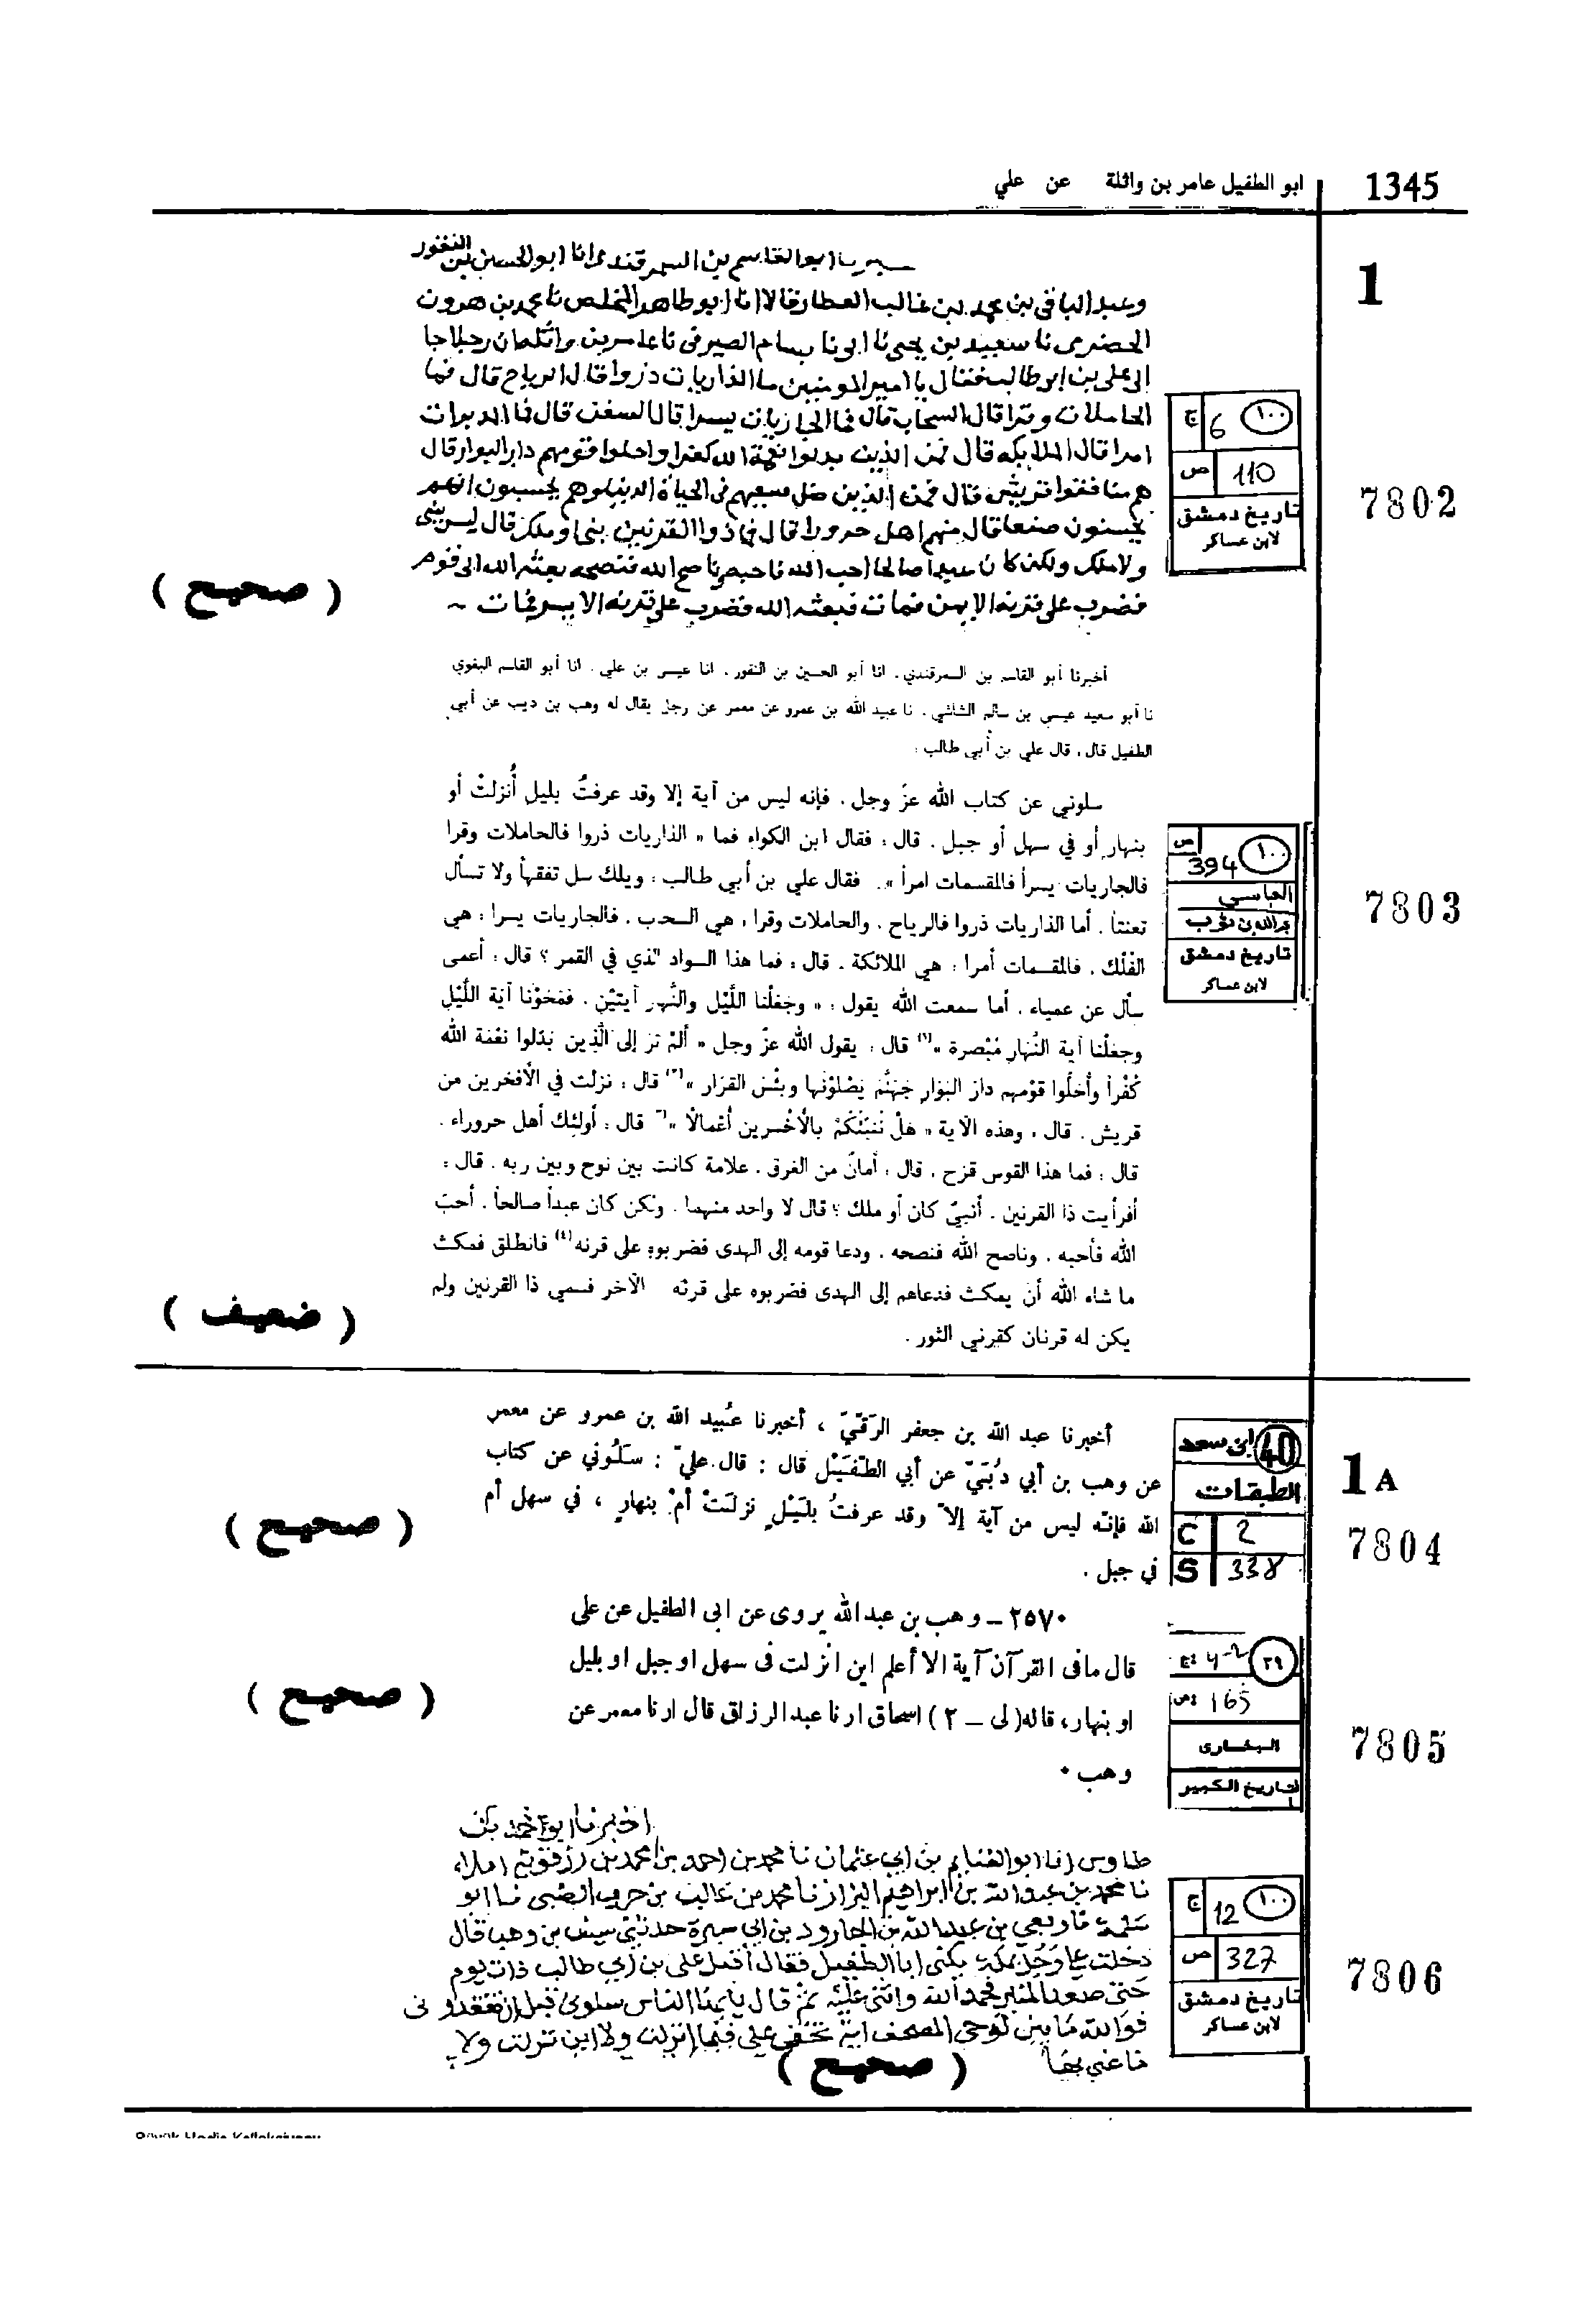 1345
ابو الطفيل عامر بن واثلة عن علي
1
ابو القاسم بن السمرقندى انا ابو الحسين بن النقور
وعبد الباقى بن محمد بن غالب العطار قالا انا ابو طاهر المخلص نا محمد بن هرون
الحضرمى نا سعيد بن يحيى نا ابى نا بسام الصيرفى نا عامر بن واثلة ان رجلا جا
الى على بن ابى طالب فقال يا امير المومنين ما الذاريات ذروا قال الرياح قال فما
الحاملات وقرا قال السحاب قال فما الجاريات يسرا قال السفن قال فما المدبرات
امرا قال الملايكه قال فمن الذين بدلوا نعمة الله كفرا واحلوا قومهم دار البوار قال
هم منافقوا قريش قال فمن الذين ضل سعيهم فى الحياة الدنيا وهم يحسبون انهم
يحسنون صنعا قال منهم اهل حرورا قال فما ذوا القرنين نبى او ملك قال ليس بنبى
ولا ملك ولكن كان عبدا صالحا احب الله فاحبه وناصح الله فنصحه بعثه الله الى قومه
فضرب على قرنه الايمن فمات فبعثه الله فضرب على قرنه الايسر فمات ~
( صحيح )
١٠٠
ج 6
ص 110
تاريخ دمشق
لابن عساكر
7802
أخبرنا أبو القاسم بن السمرقندي ، انا أبو الحسين بن النقور ، انا عيسى بن علي ، انا أبو القاسم البغوي
نا أبو سعيد عيسى بن سالم الشاشي ، نا عبيد الله بن عمرو عن معمر عن رجل يقال له وهب بن ديب عن أبي
الطفيل قال ، قال علي بن أبي طالب :
سلوني عن كتاب الله عزّ وجل ، فإنه ليس من آية إلا وقد عرفتُ بليل أُنزلتْ أو
بنهار أو في سهل أو جبل . قال : فقال ابن الكواء فما « الذاريات ذروا فالحاملات وقرا
فالجاريات يسراً فالمقسمات امراً » . فقال علي بن أبي طالب : ويلك سل تفقهاً ولا تسأل
تعنتاً . أما الذاريات ذروا فالرياح . والحاملات وقرا ، هي السحب . فالجاريات يسرا : هي
الفُلْك . فالمقسمات أمرا : هي الملائكة . قال : فما هذا السواد الذي في القمر ؟ قال : أعمى
سأل عن عمياء . أما سمعت الله يقول : « وجَعَلْنا اللّيْل والنّهار آيتَيْنِ ، فمَحَوْنا آيَة اللّيْلِ
وجعلْنا آية النّهارِ مُبْصرة » قال : يقول الله عزّ وجل « ألمْ ترَ إلى الّذين بَدّلوا نعْمَة الله
كُفْراً وأحَلّوا قوْمهم دارَ البَوارِ جَهنّم يَصْلوْنَها وبئْسَ القرَار » قال : نزلت في الأفخرين من
قريش . قال ، وهذه الآية « هَلْ نُنبّئكُمْ بالأخْسرين أعْمالاً » قال : أولئك أهل حروراء .
قال : فما هذا القوس قزح . قال : أمانٌ من الغرق . علامة كانت بين نوح وبين ربه . قال :
أفرأيت ذا القرنين . أنبيّ كان أو ملك ؟ قال لا واحد منهما . ولكن كان عبداً صالحاً . أحبّ
الله فأحبه . وناصح الله فنصحه . ودعا قومه إلى الهدى فضربوه على قرنه (٤) فانطلق فمكث
ما شاء الله أن يمكث فدعاهم إلى الهدى فضربوه على قرنه الآخر فسمي ذا القرنين ولم
يكن له قرنان كقرني الثور .
( ضعيف )
١٠٠
ص 394
تاريخ دمشق
لابن عساكر
7803
أخبرنا عبد الله بن جعفر الرَّقّيّ ، أخبرنا عُبيد الله بن عمرو عن معمر
عن وهب بن أبي دُبَيّ عن أبي الطّفَيْل قال : قال عليّ : سَلُوني عن كتاب
الله فإنّه ليس من آية إلاّ وقد عرفتُ بلَيْلٍ نزلَتْ أمْ بنهارٍ ، في سهل أم
في جبل .
( صحيح )
40
ابن سعد
الطبقات
C 2
S 338
1 A
7804
٢٥٧٠ – وهب بن عبد الله يروى عن ابى الطفيل عن على
قال ما فى القرآن آية الا أعلم اين انزلت فى سهل او جبل او بليل
او بنهار، قاله (لى – ٢) اسحاق ارنا عبد الرزاق قال ارنا معمر عن
وهب •
( صحيح )
٣٩
ج: 4-2
ص: 165
البخارى
التاريخ الكبير
7805
اخبرنا ابو احمد بن
طاوس انا ابو الغنايم بن ابي عثمان نا محمد بن احمد بن محمد بن رزقويه املاء
نا محمد بن عبد الله بن ابراهيم البزاز نا محمد بن غالب بن حرب الضبى نا ابو
سلمة نا ربعي بن عبد الله بن الجارود بن ابي سبرة حدثني سيف بن وهب قال
دخلت على رجل بمكة يكنى ابا الطفيل فقال أقبل على بن ابي طالب ذات يوم
حتى صعد المنبر فحمد الله واثنى عليه ثم قال يا ايها الناس سلوني قبل ان تفقدونى
فوالله ما بين لوحي المصحف اية تخفى علي فيما انزلت ولا اين نزلت ولا
ما عني بها
( صحيح )
١٠٠
ج 12
ص 327
تاريخ دمشق
لابن عساكر
7806